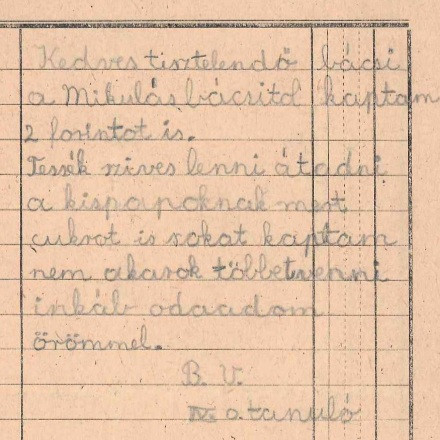 Kedves tisztelendő bácsi
a Mikulás bácsitól kaptam
2 forintot is.
Tessék szives lenni átadni
a kispapoknak mert
cukrot is sokat kaptam
nem akarok többet venni
inkáb odaadom
örömmel.
B. V.
IV. o. tanuló